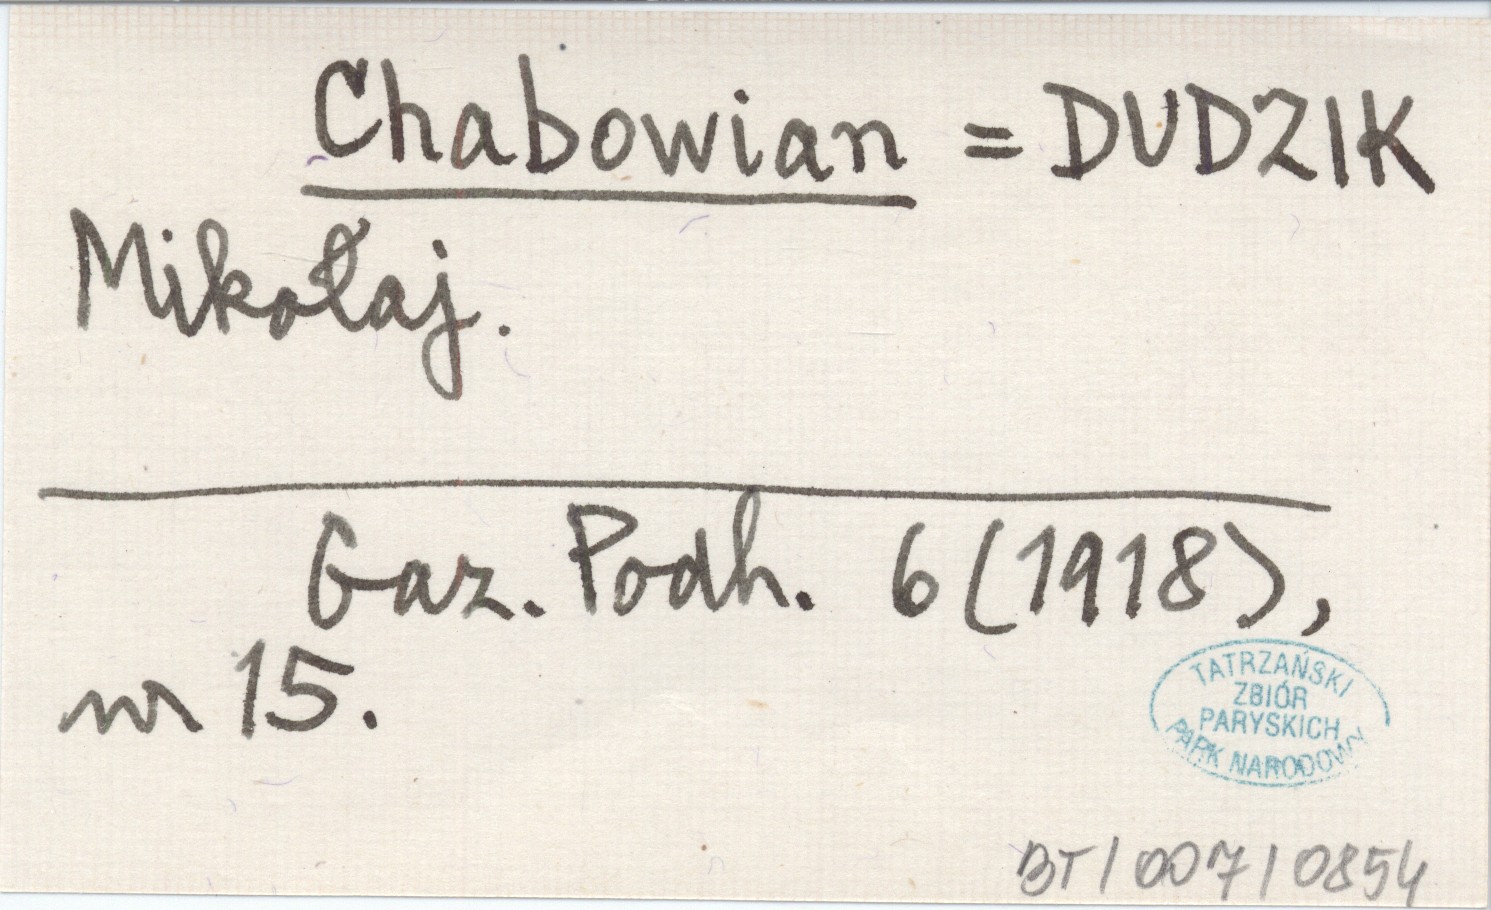 Chabowian = DUDZIK
Mikołaj.
Gaz. Podh. 6 (1918),
nr 15.
TATRZAŃSKI
ZBIÓR
PARYSKICH
PARK NARODOWY
BT/007/0854